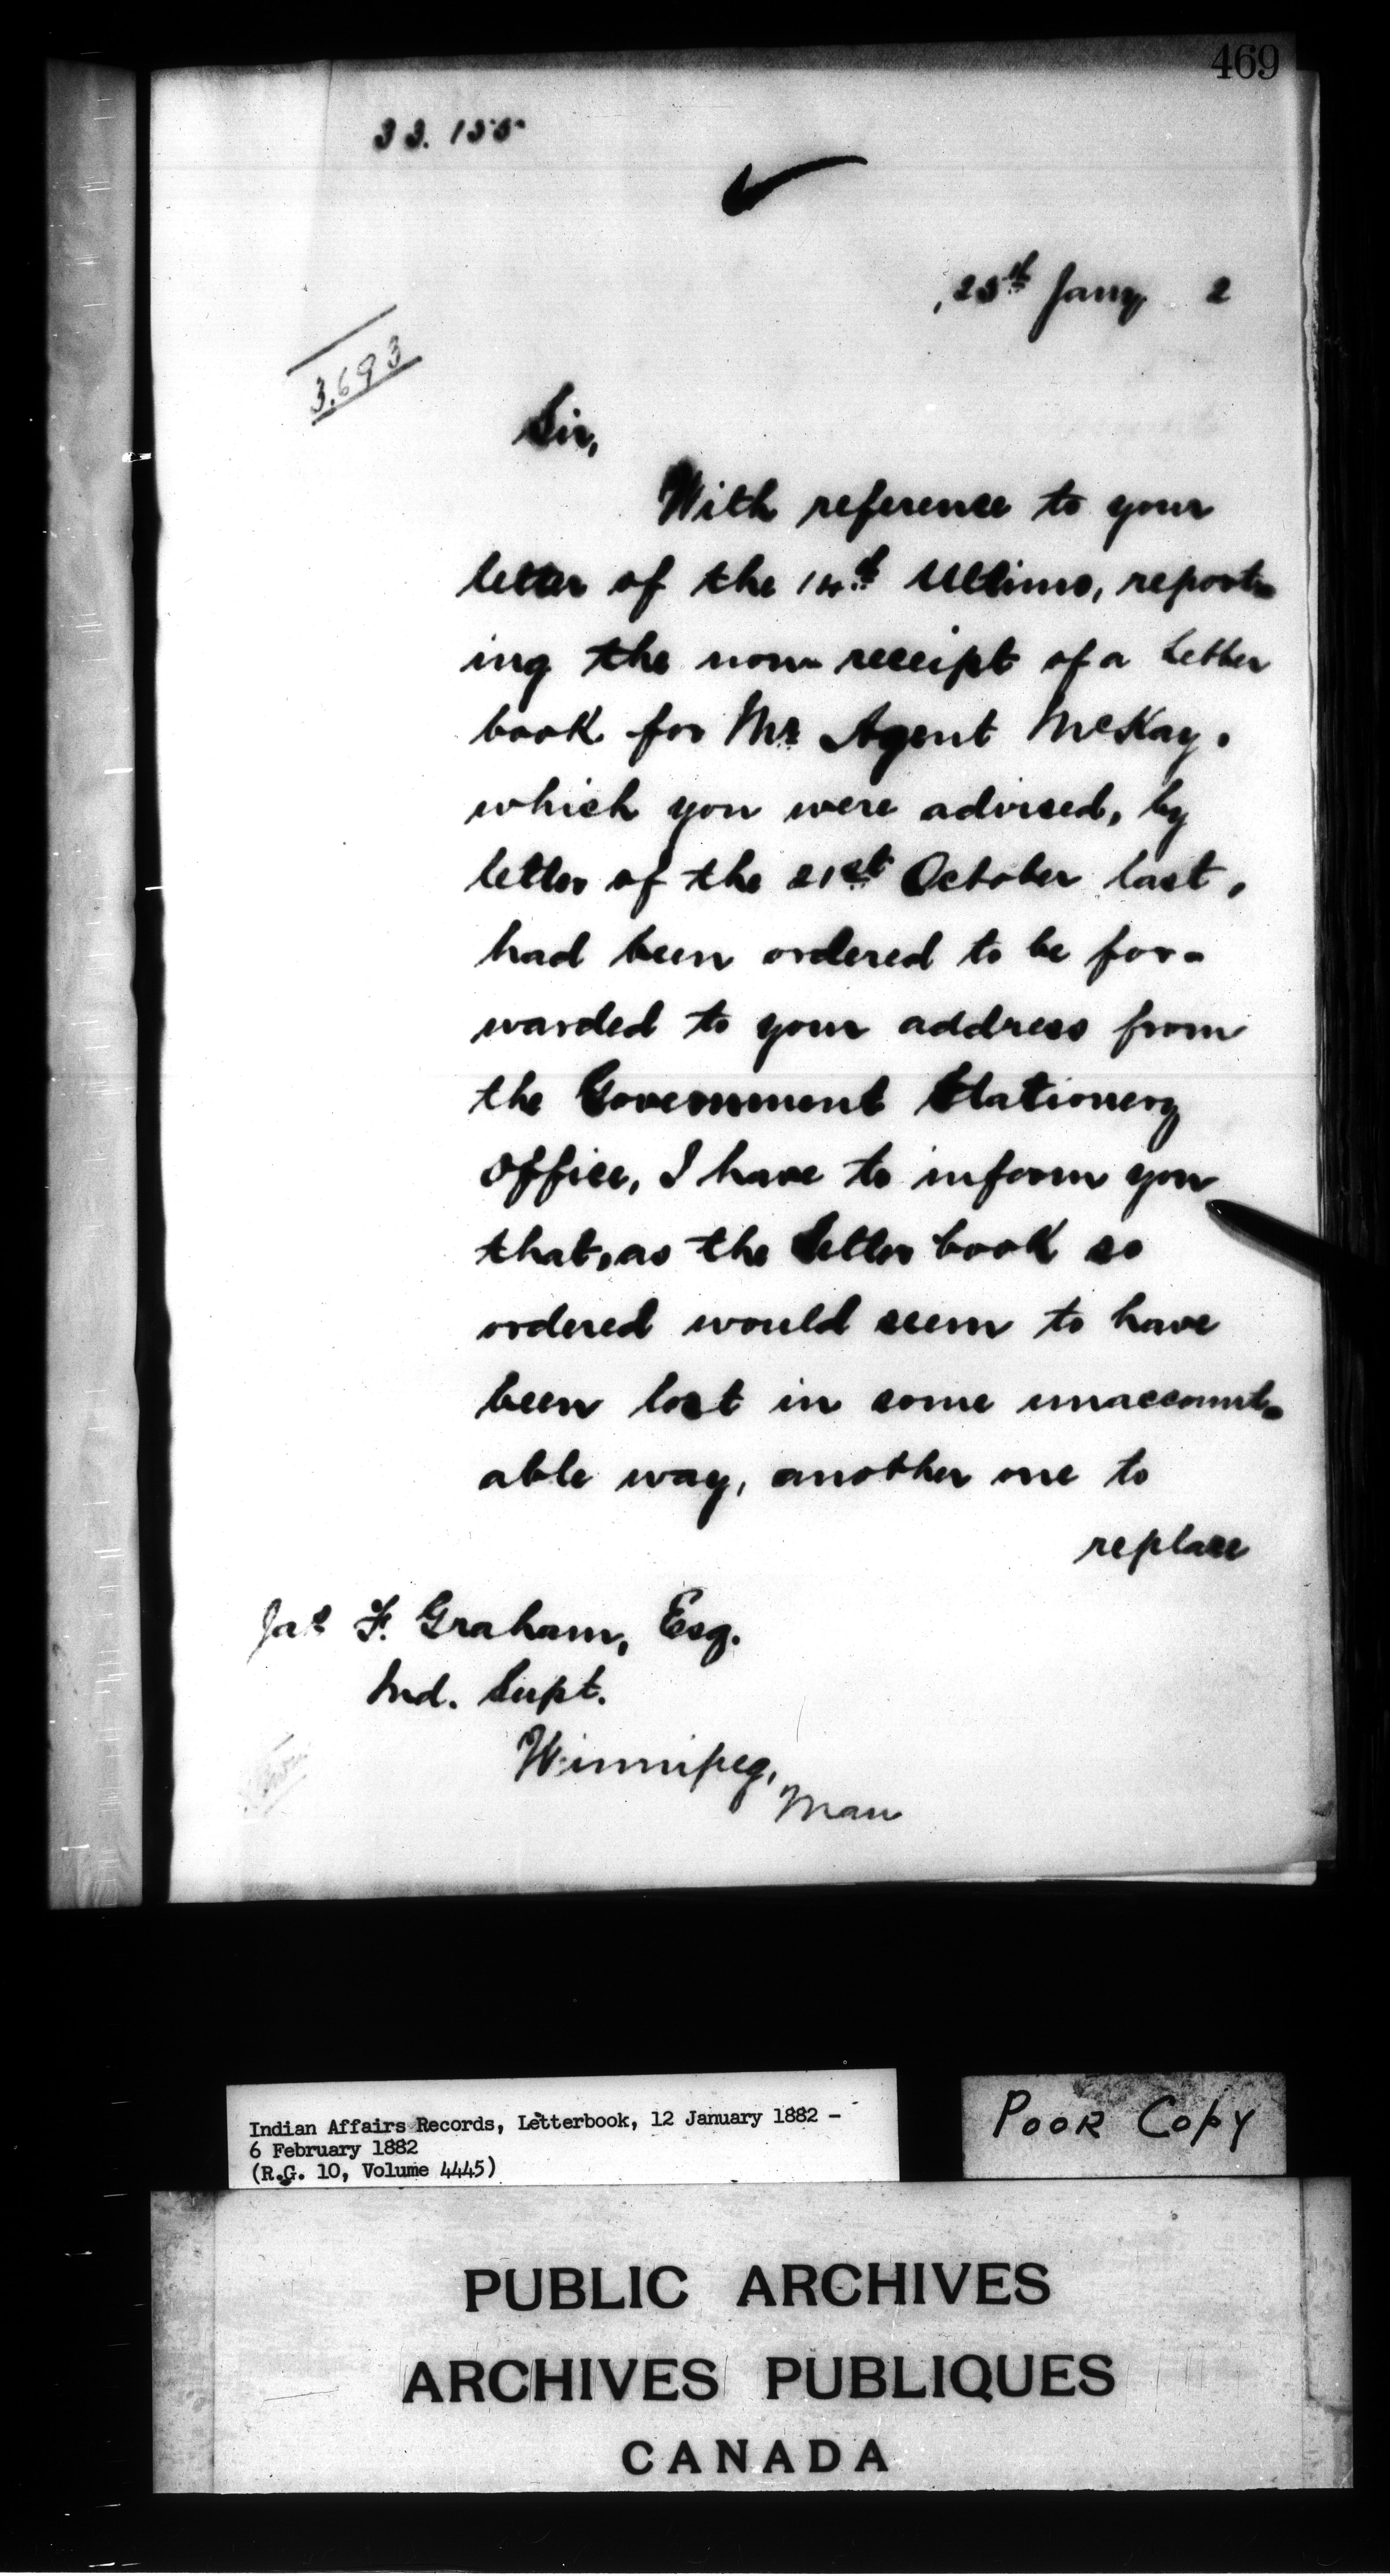 469
33.155
25th Jany 2
3.693
Sir,
With reference to your
letter of the 14th Ultimo, report-
ing the non-receipt of a Letter
book for Mr Agent McKay,
which you were advised, by
letter of the 21st October last,
had been ordered to be for-
warded to your address from
the Government Stationery
Office, I have to inform you
that, as the Letter book so
ordered would seem to have
been lost in some unaccount-
able way, another one to
replace
Jas F. Graham, Esq.
Ind. Supt.
Winnipeg,
Man
Indian Affairs Records, Letterbook, 12 January 1882 -
6 February 1882
(R.G. 10, Volume 4445)
POOR COPY
PUBLIC ARCHIVES
ARCHIVES PUBLIQUES
CANADA